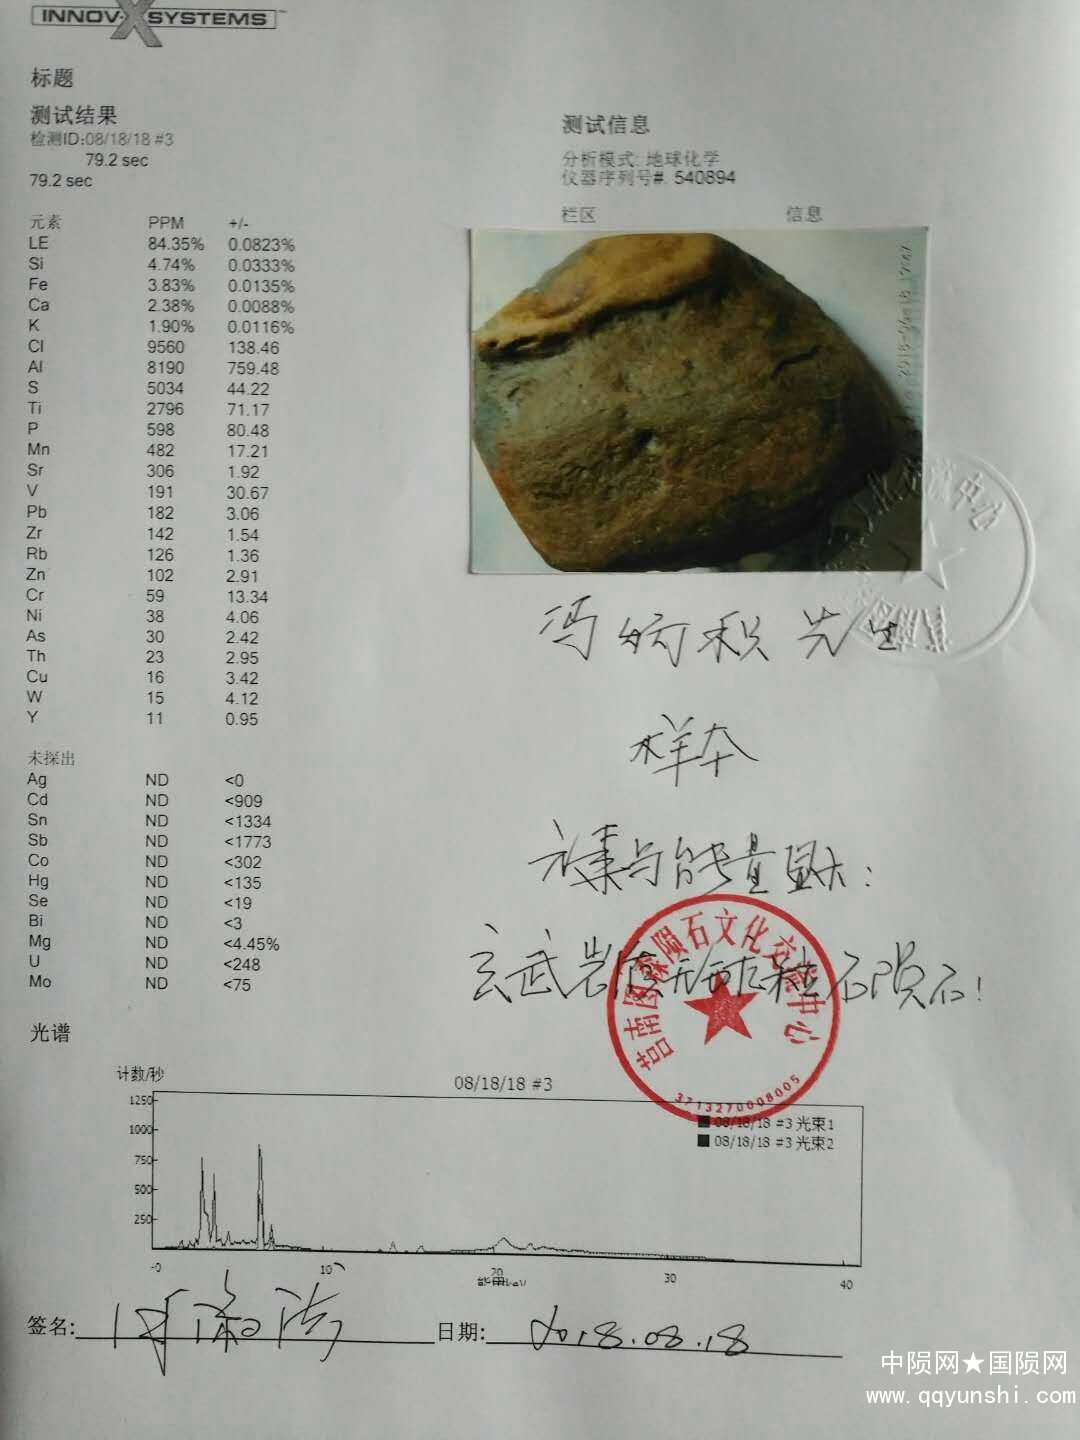 INNOV-X SYSTEMS
标题
测试结果
检测ID:08/18/18 #3
79.2 sec
79.2 sec
测试信息
分析模式: 地球化学
仪器序列号#. 540894
栏区 信息
元素 PPM +/-
LE 84.35% 0.0823%
Si 4.74% 0.0333%
Fe 3.83% 0.0135%
Ca 2.38% 0.0088%
K 1.90% 0.0116%
Cl 9560 138.46
Al 8190 759.48
S 5034 44.22
Ti 2796 71.17
P 598 80.48
Mn 482 17.21
Sr 306 1.92
V 191 30.67
Pb 182 3.06
Zr 142 1.54
Rb 126 1.36
Zn 102 2.91
Cr 59 13.34
Ni 38 4.06
As 30 2.42
Th 23 2.95
Cu 16 3.42
W 15 4.12
Y 11 0.95
未探出
Ag ND <0
Cd ND <909
Sn ND <1334
Sb ND <1773
Co ND <302
Hg ND <135
Se ND <19
Bi ND <3
Mg ND <4.45%
U ND <248
Mo ND <75
中心
冯 积先生
样本
元素与能量显示:
玄武岩质无球粒石陨石!
莒南国森陨石文化交流中心
3713270008005
光谱
计数/秒
08/18/18 #3
1250
1000
750
500
250
08/18/18 #3 光束1
08/18/18 #3 光束2
-0 10 20 30 40
能量keV
签名:
日期: 2018.08.18
中陨网★国陨网
www.qqyunshi.com